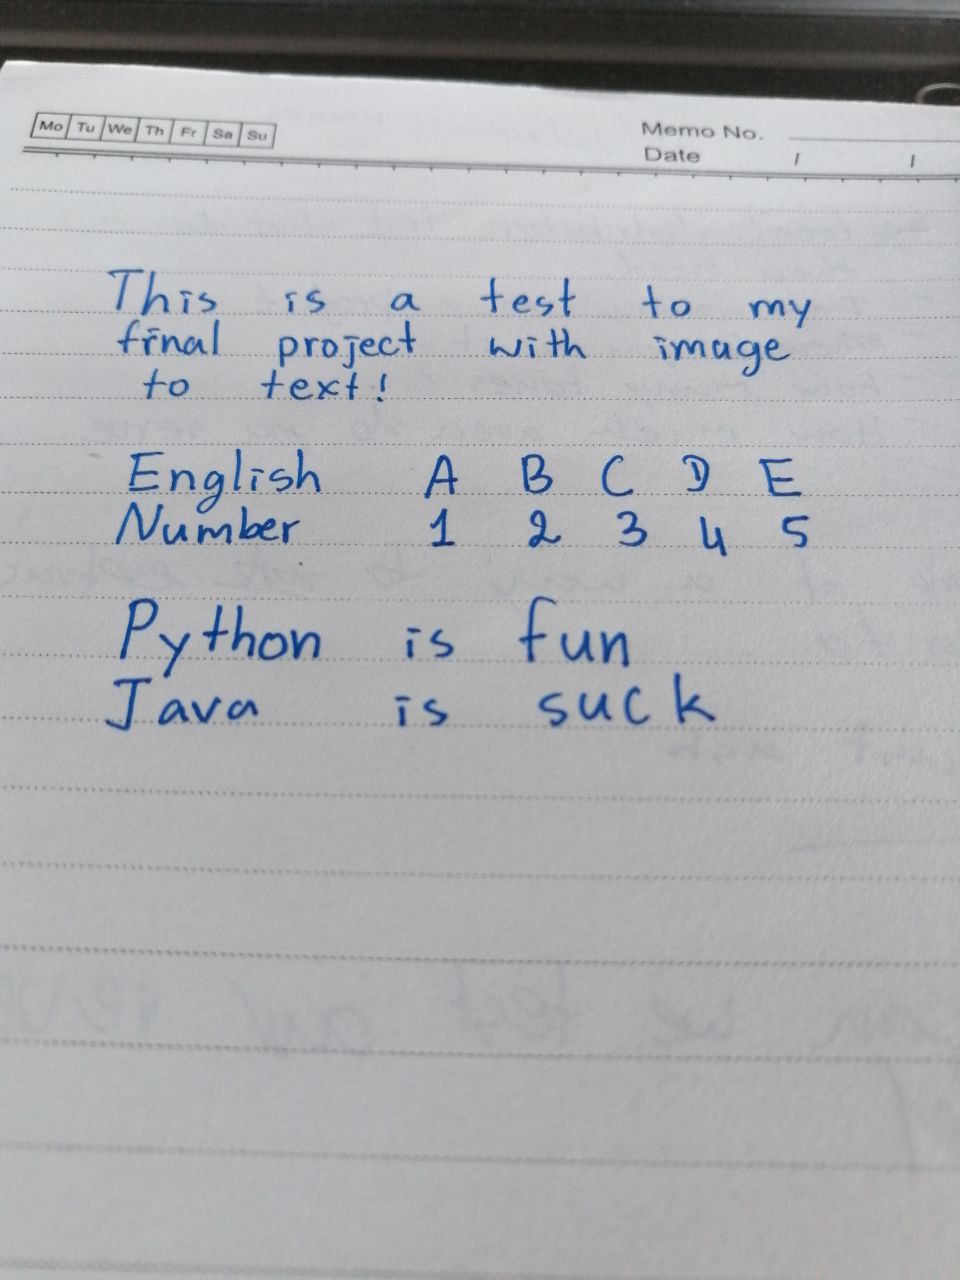 Mo Tu We Th Fr Sa Su
Memo No.
Date / /
This is a test to my
final project with image
to text!
English A B C D E
Number 1 2 3 4 5
Python is fun
Java is suck